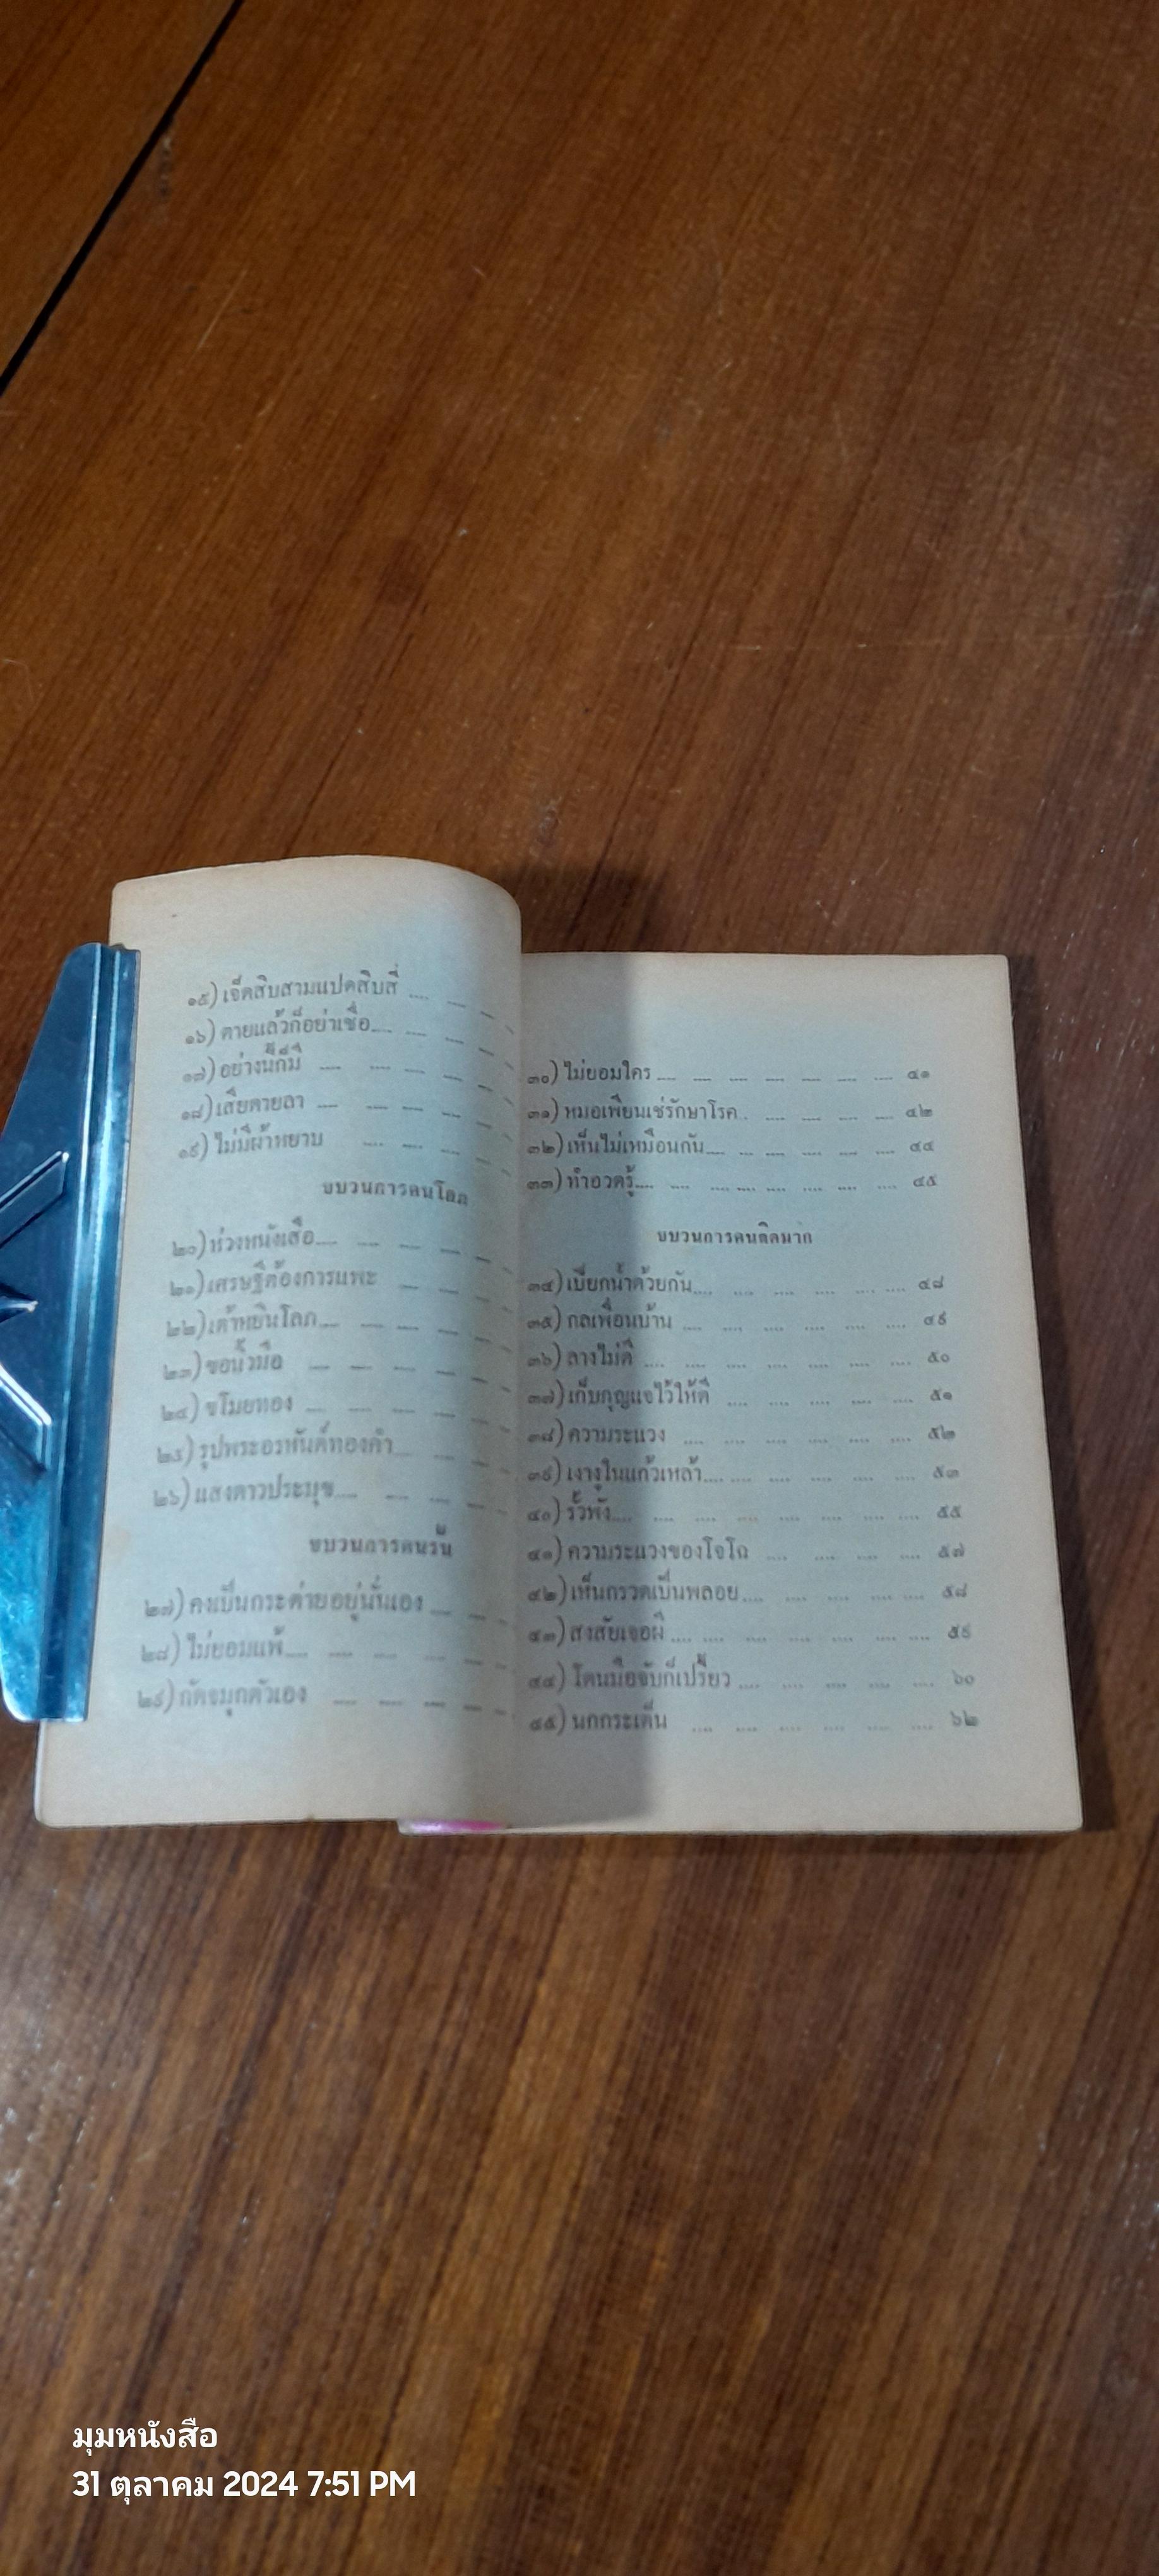 ๑๕) เจ็ดสิบสามแปดสิบสี่ .... .... ....
๑๖) ตายแล้วก็อย่าเชื่อ.... .... .... ....
๑๗) อย่างนี้ก็มี .... .... .... ....
๑๘) เสียดายลา .... .... .... ....
๑๙) ไม่มีผ้าหยาบ .... .... ....
ขบวนการคนโลภ
๒๐) ห่วงหนังเสือ.... .... .... ....
๒๑) เศรษฐีต้องการแพะ .... .... ....
๒๒) เต้าหยินโลภ.... .... .... ....
๒๓) ขอนิ้วมือ .... .... .... ....
๒๔) ขโมยทอง .... .... .... ....
๒๕) รูปพระอรหันต์ทองคำ.... .... ....
๒๖) แสงดาวประมุข.... .... .... ....
ขบวนการคนรั้น
๒๗) คงเป็นกระต่ายอยู่นั่นเอง .... .... ....
๒๘) ไม่ยอมแพ้.... .... .... .... ....
๒๙) กัดจมูกตัวเอง .... .... .... ....
๓๐) ไม่ยอมใคร .... .... .... .... .... .... .... ๔๑
๓๑) หมอเพียนเช่รักษาโรค . .... .... .... .... ๔๒
๓๒) เห็นไม่เหมือนกัน.... .... .... .... .... .... ๔๔
๓๓) ทำอวดรู้.... .... .... .... .... .... .... ๔๕
ขบวนการคนคิดมาก
๓๔) เบียกน้ำด้วยกัน.... .... .... .... .... .... ๔๘
๓๕) กลเพื่อนบ้าน .... .... .... .... .... .... ๔๙
๓๖) ลางไม่ดี .... .... .... .... .... .... .... ๕๐
๓๗) เก็บกุญแจไว้ให้ดี .... .... .... .... .... ๕๑
๓๘) ความระแวง .... .... .... .... .... .... ๕๒
๓๙) เงางูในแก้วเหล้า.... .... .... .... .... .... ๕๓
๔๐) รั้วพัง.... .... .... .... .... .... .... .... ๕๕
๔๑) ความระแวงของโจโฉ .... .... .... .... ๕๗
๔๒) เห็นกรวดเป็นพลอย.... .... .... .... .... ๕๘
๔๓) สงสัยเจอผี .... .... .... .... .... .... .... ๕๙
๔๔) โดนมือจับก็เปรี้ยว .... .... .... .... .... ๖๐
๔๕) นกกระเต็น .... .... .... .... .... .... ๖๒
มุมหนังสือ
31 ตุลาคม 2024 7:51 PM